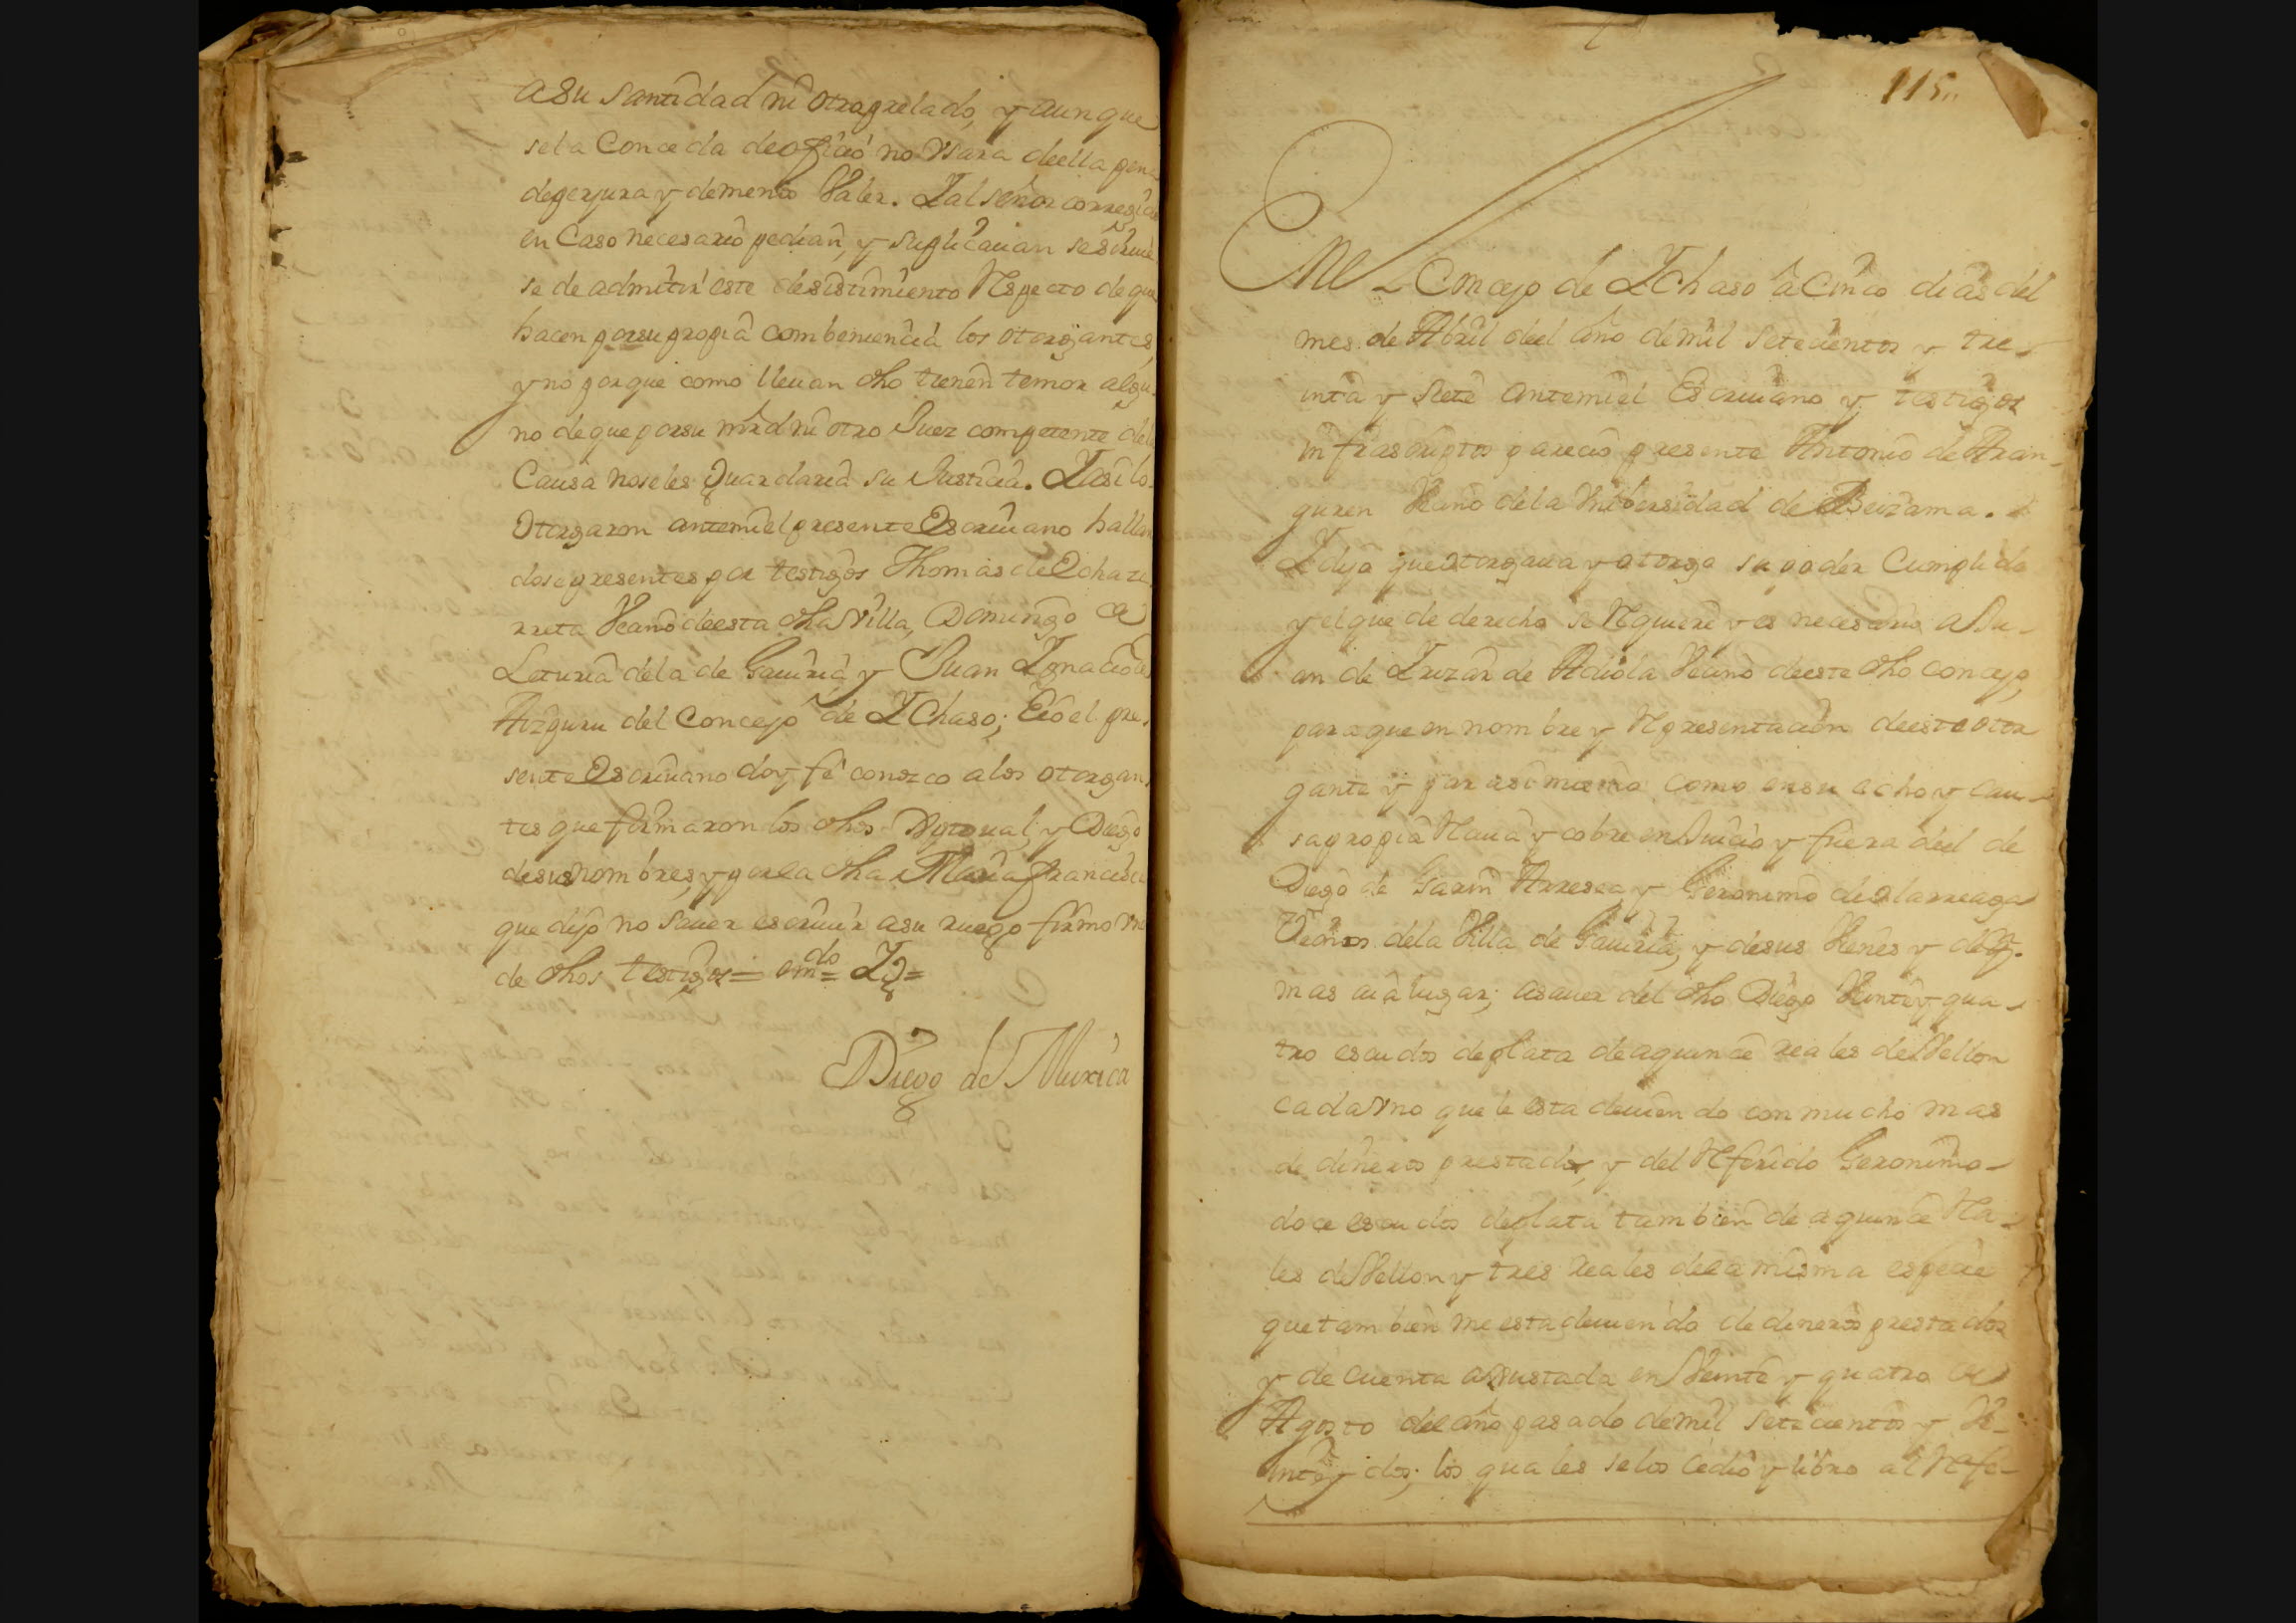 a su santidad ni otro prelado, y aunque
se la Conceda de oficio no Vsara de ella pena
de perjura y de menos Valer. Y al señor corregidor
en Caso necesario pedian, y suplicauan se siruie
se de admitir este desistimiento Respecto de que
hacen por su propia combeniencia los otorgantes,
y no porque como lleuan dho tienen temor algu
no de que por su mrd ni otro Juez competente de la
Causa no se les Guardaria su Justicia. Y asi lo
Otorgaron ante mi el presente Escriuano hallan
dose presentes por testigos Thomas de Echaze
rreta Vecino de esta dha Villa, Domingo de
Leturia de la de Gauiria y Juan Ignacio de
Aizguru del Concejo de Ychaso; E io el pre
sente Escriuano doy fe conozco a los otorgan
tes que firmaron los dhos y Diego
de sus nombres, y por la dha Maria francisca
que dijo no sauer escriuir a su ruego firmo vno
de dhos testigos = emdo =
Diego de Muxica
115
En el Concejo de Ychaso â Cinco dias del
mes de Abril del año de mil setecientos y tre
inta y siete ante mi el Escriuano y testigos
infrascriptos parecio presente Antonio de Aran
guren Vecino de la Vnibersidad de Beizama.
Y dijo que otorgaua y otorgo su poder Cumplido
y el que de derecho se Requiere y es necesario a Ju
an de Irizar de Adiola Vecino de este dho concejo,
para que en nombre y Representacion de este otor
gante y para si mismo como en su echo y cau
sa propia Reciua y cobre en Juicio y fuera del de
Diego de Garin Arresea, y Geronimo de Olarreaga
Vecinos de la Villa de Gauiria, y de sus Vienes y de q.
mas aia lugar; a sauer del dho Diego Veinte y qua
tro escudos de plata de a quince reales de Vellon
cada Vno que le esta deuiendo con mucho mas
de dineros prestados, y del Referido Geronimo
doce escudos de plata tambien de a quince Rea
les de Vellon y tres reales de la misma especie
que tambien me esta deuiendo de dineros prestados
y de cuenta ajustada en Veinte y quatro de
Agosto del año pasado de mil setecientos y Ve
inte y dos; los quales se los cedio y libro al Refe